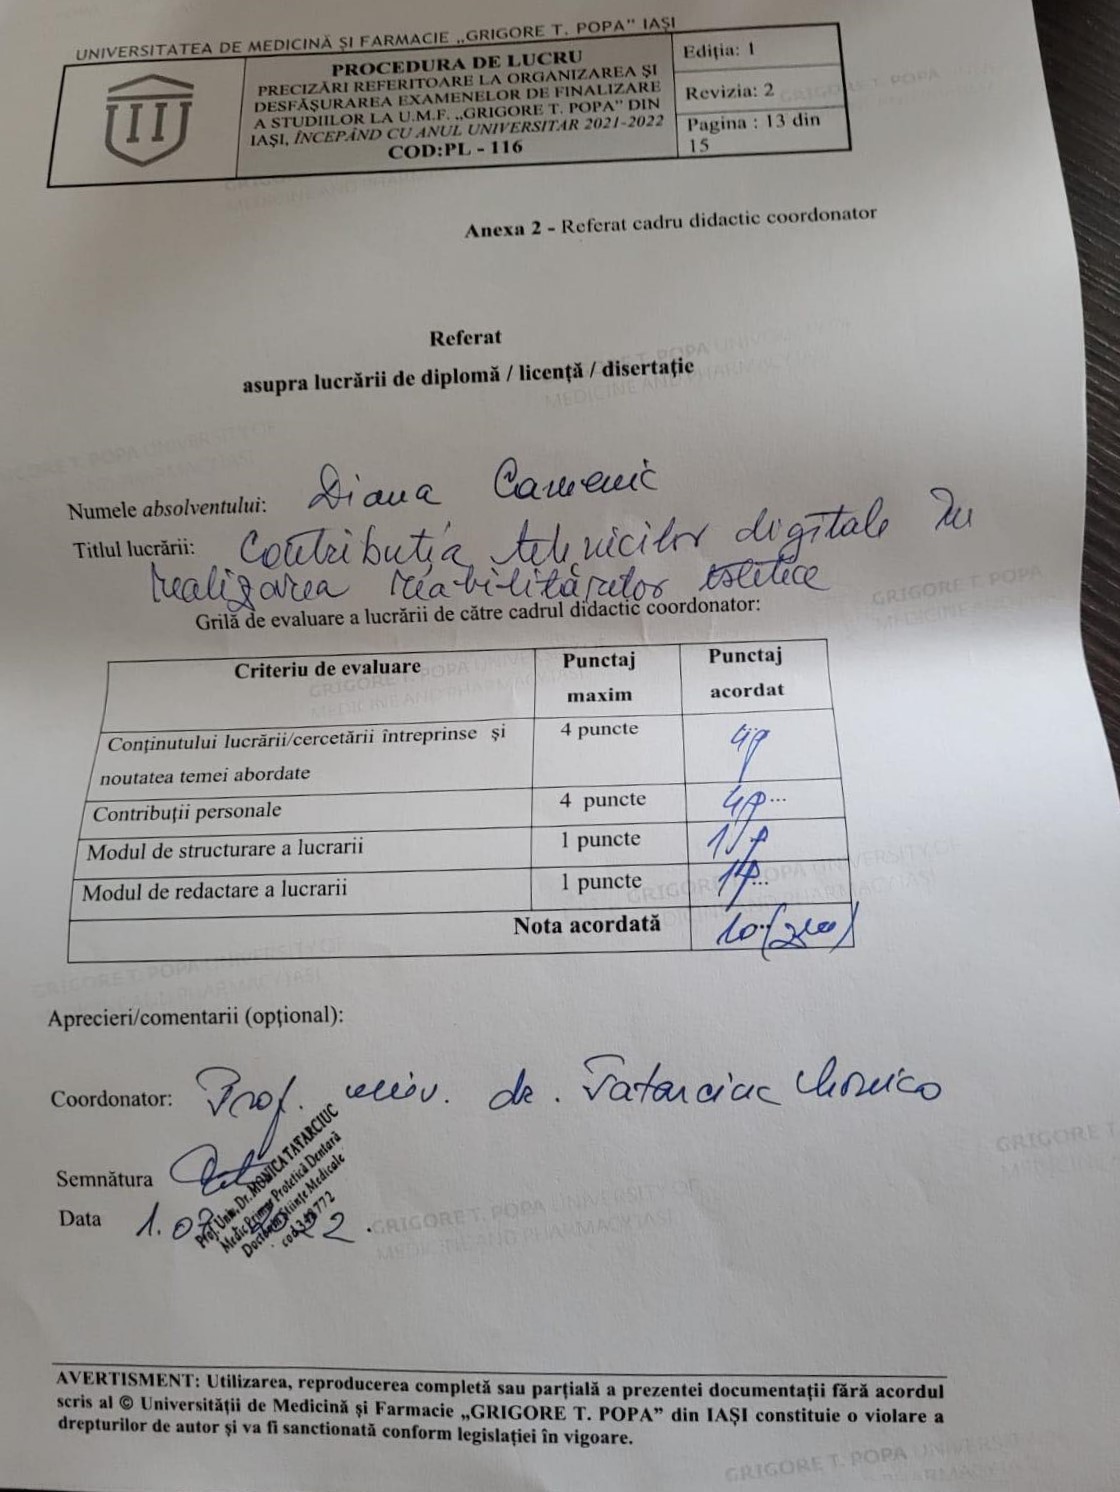 UNIVERSITATEA DE MEDICINĂ ŞI FARMACIE „GRIGORE T. POPA” IAŞI
PROCEDURA DE LUCRU
PRECIZĂRI REFERITOARE LA ORGANIZAREA ŞI
DESFĂŞURAREA EXAMENELOR DE FINALIZARE
A STUDIILOR LA U.M.F. „GRIGORE T. POPA” DIN
IAŞI, ÎNCEPÂND CU ANUL UNIVERSITAR 2021-2022
COD:PL - 116
Ediția: 1
Revizia: 2
Pagina : 13 din
15
Anexa 2 - Referat cadru didactic coordonator
Referat
asupra lucrării de diplomă / licență / disertație
Numele absolventului: Diana Camenic
Titlul lucrării: Contribuția tehnicilor digitale în
realizarea reabilitărilor estetice
Grilă de evaluare a lucrării de către cadrul didactic coordonator:
Criteriu de evaluare Punctaj maxim Punctaj acordat
Conținutului lucrării/cercetării întreprinse și
noutatea temei abordate 4 puncte 4p
Contribuții personale 4 puncte 4p...
Modul de structurare a lucrarii 1 puncte 1p
Modul de redactare a lucrarii 1 puncte 1p...
Nota acordată 10 (zece)
Aprecieri/comentarii (opțional):
Coordonator: Prof. univ. dr. Tatarciuc Monica
Semnătura
Prof. Univ. Dr. MONICA TATARCIUC
Medic Primar Protetică Dentară
Doctor în Științe Medicale
cod 348772
Data 1.07.2022.
AVERTISMENT: Utilizarea, reproducerea completă sau parțială a prezentei documentații fără acordul
scris al © Universității de Medicină și Farmacie „GRIGORE T. POPA” din IAŞI constituie o violare a
drepturilor de autor și va fi sanctionată conform legislației în vigoare.
GRIGORE T. POPA UNIVERSITY OF
MEDICINE AND PHARMACY IASI